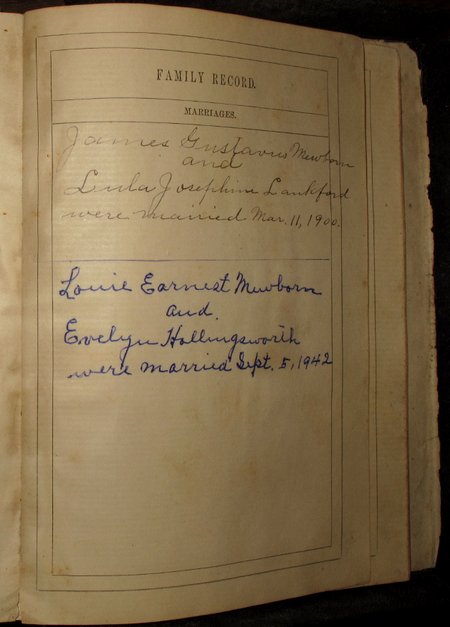 FAMILY RECORD.
MARRIAGES.
James Gustavus Mewborn
and
Lula Josephine Lankford
were married Mar. 11, 1900.
Louie Earnest Mewborn
and.
Evelyn Hollingsworth
were married Sept. 5, 1942